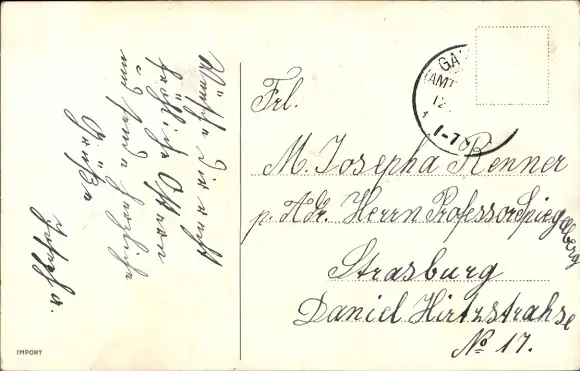 Wünsche Dir recht
fröhliche Ostern
und sende herzliche
Grüße
GA
(AMT
12
1-7 N
Frl.
M. Josepha Renner
p. Adr. Herrn Professor Spiegelberg
Strasburg
Daniel Hirtzstrahse
No 17.
IMPORT